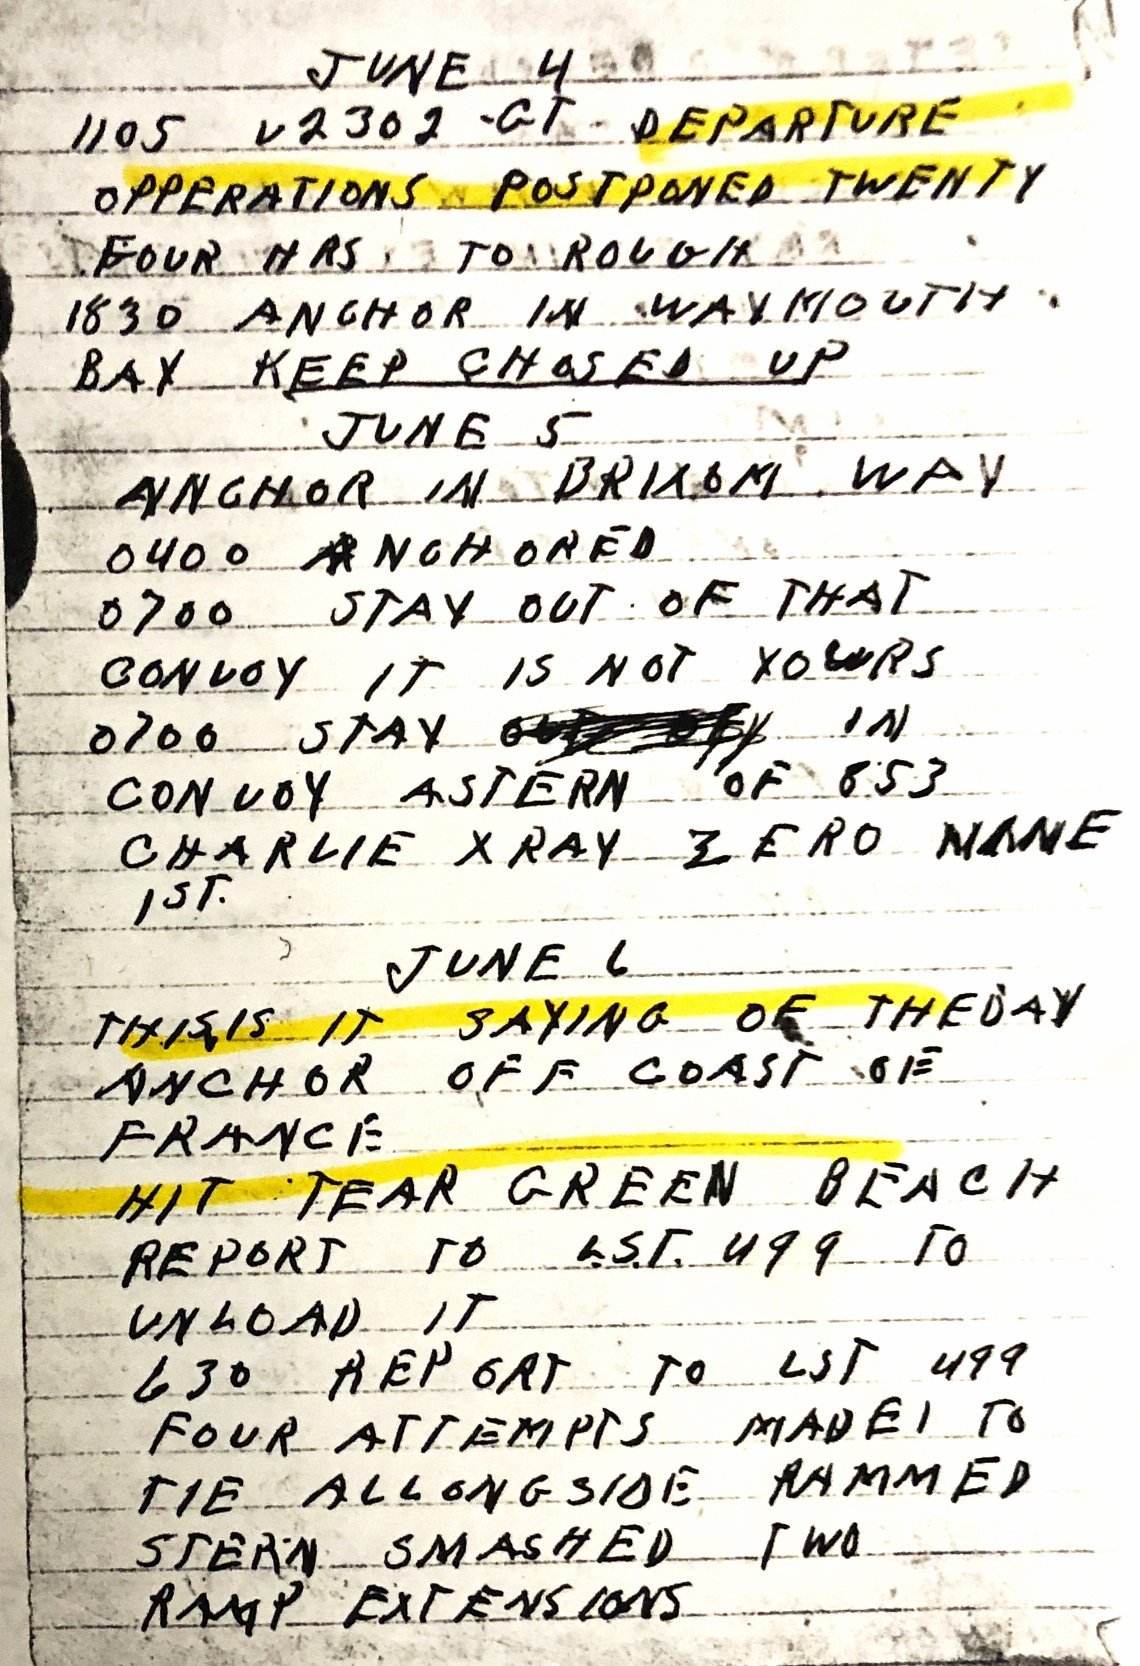 JUNE 4
1105 V2302-GT- DEPARTURE
OPPERATIONS POSTPONED TWENTY
FOUR HRS TO ROUGH
1830 ANCHOR IN WAYMOUTH
BAY KEEP CHOSED UP
JUNE 5
ANCHOR IN BRIXOM WAY
0400 ANCHORED
0700 STAY OUT OF THAT
CONVOY IT IS NOT YOURS
0700 STAY IN
CONVOY ASTERN OF 853
CHARLIE XRAY ZERO NINE
1ST.
JUNE 6
THIS IS IT SAYING OF THE DAY
ANCHOR OFF COAST OF
FRANCE
HIT TEAR GREEN BEACH
REPORT TO L.S.T. 499 TO
UNLOAD IT
630 REPORT TO LST 499
FOUR ATTEMPTS MADE TO
TIE ALLONGSIDE RAMMED
STERN SMASHED TWO
RAMP EXTENSIONS